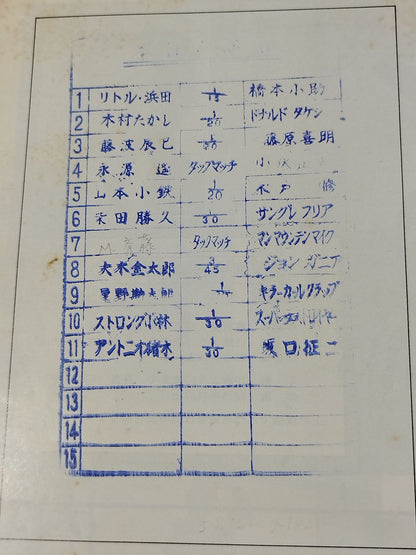 1 リトル・浜田 1/15 橋本小助
2 木村たかし 1/20 ドナルド タケシ
3 藤波辰巳 1/30 藤原喜明
4 永源 遥 タッグマッチ 小沢正志
5 山本小鉄 1/20 木戸 修
6 柴田勝久 1/30 サングレ フリア
7 タッグマッチ マンマウンテンマイク
8 大木金太郎 3/45 ジョン ガニア
9 星野勘太郎 1 キラーカールクラップ
10 ストロング小林 1/30 スーパー
11 アントニオ猪木 1/30 坂口征二
12
13
14
15